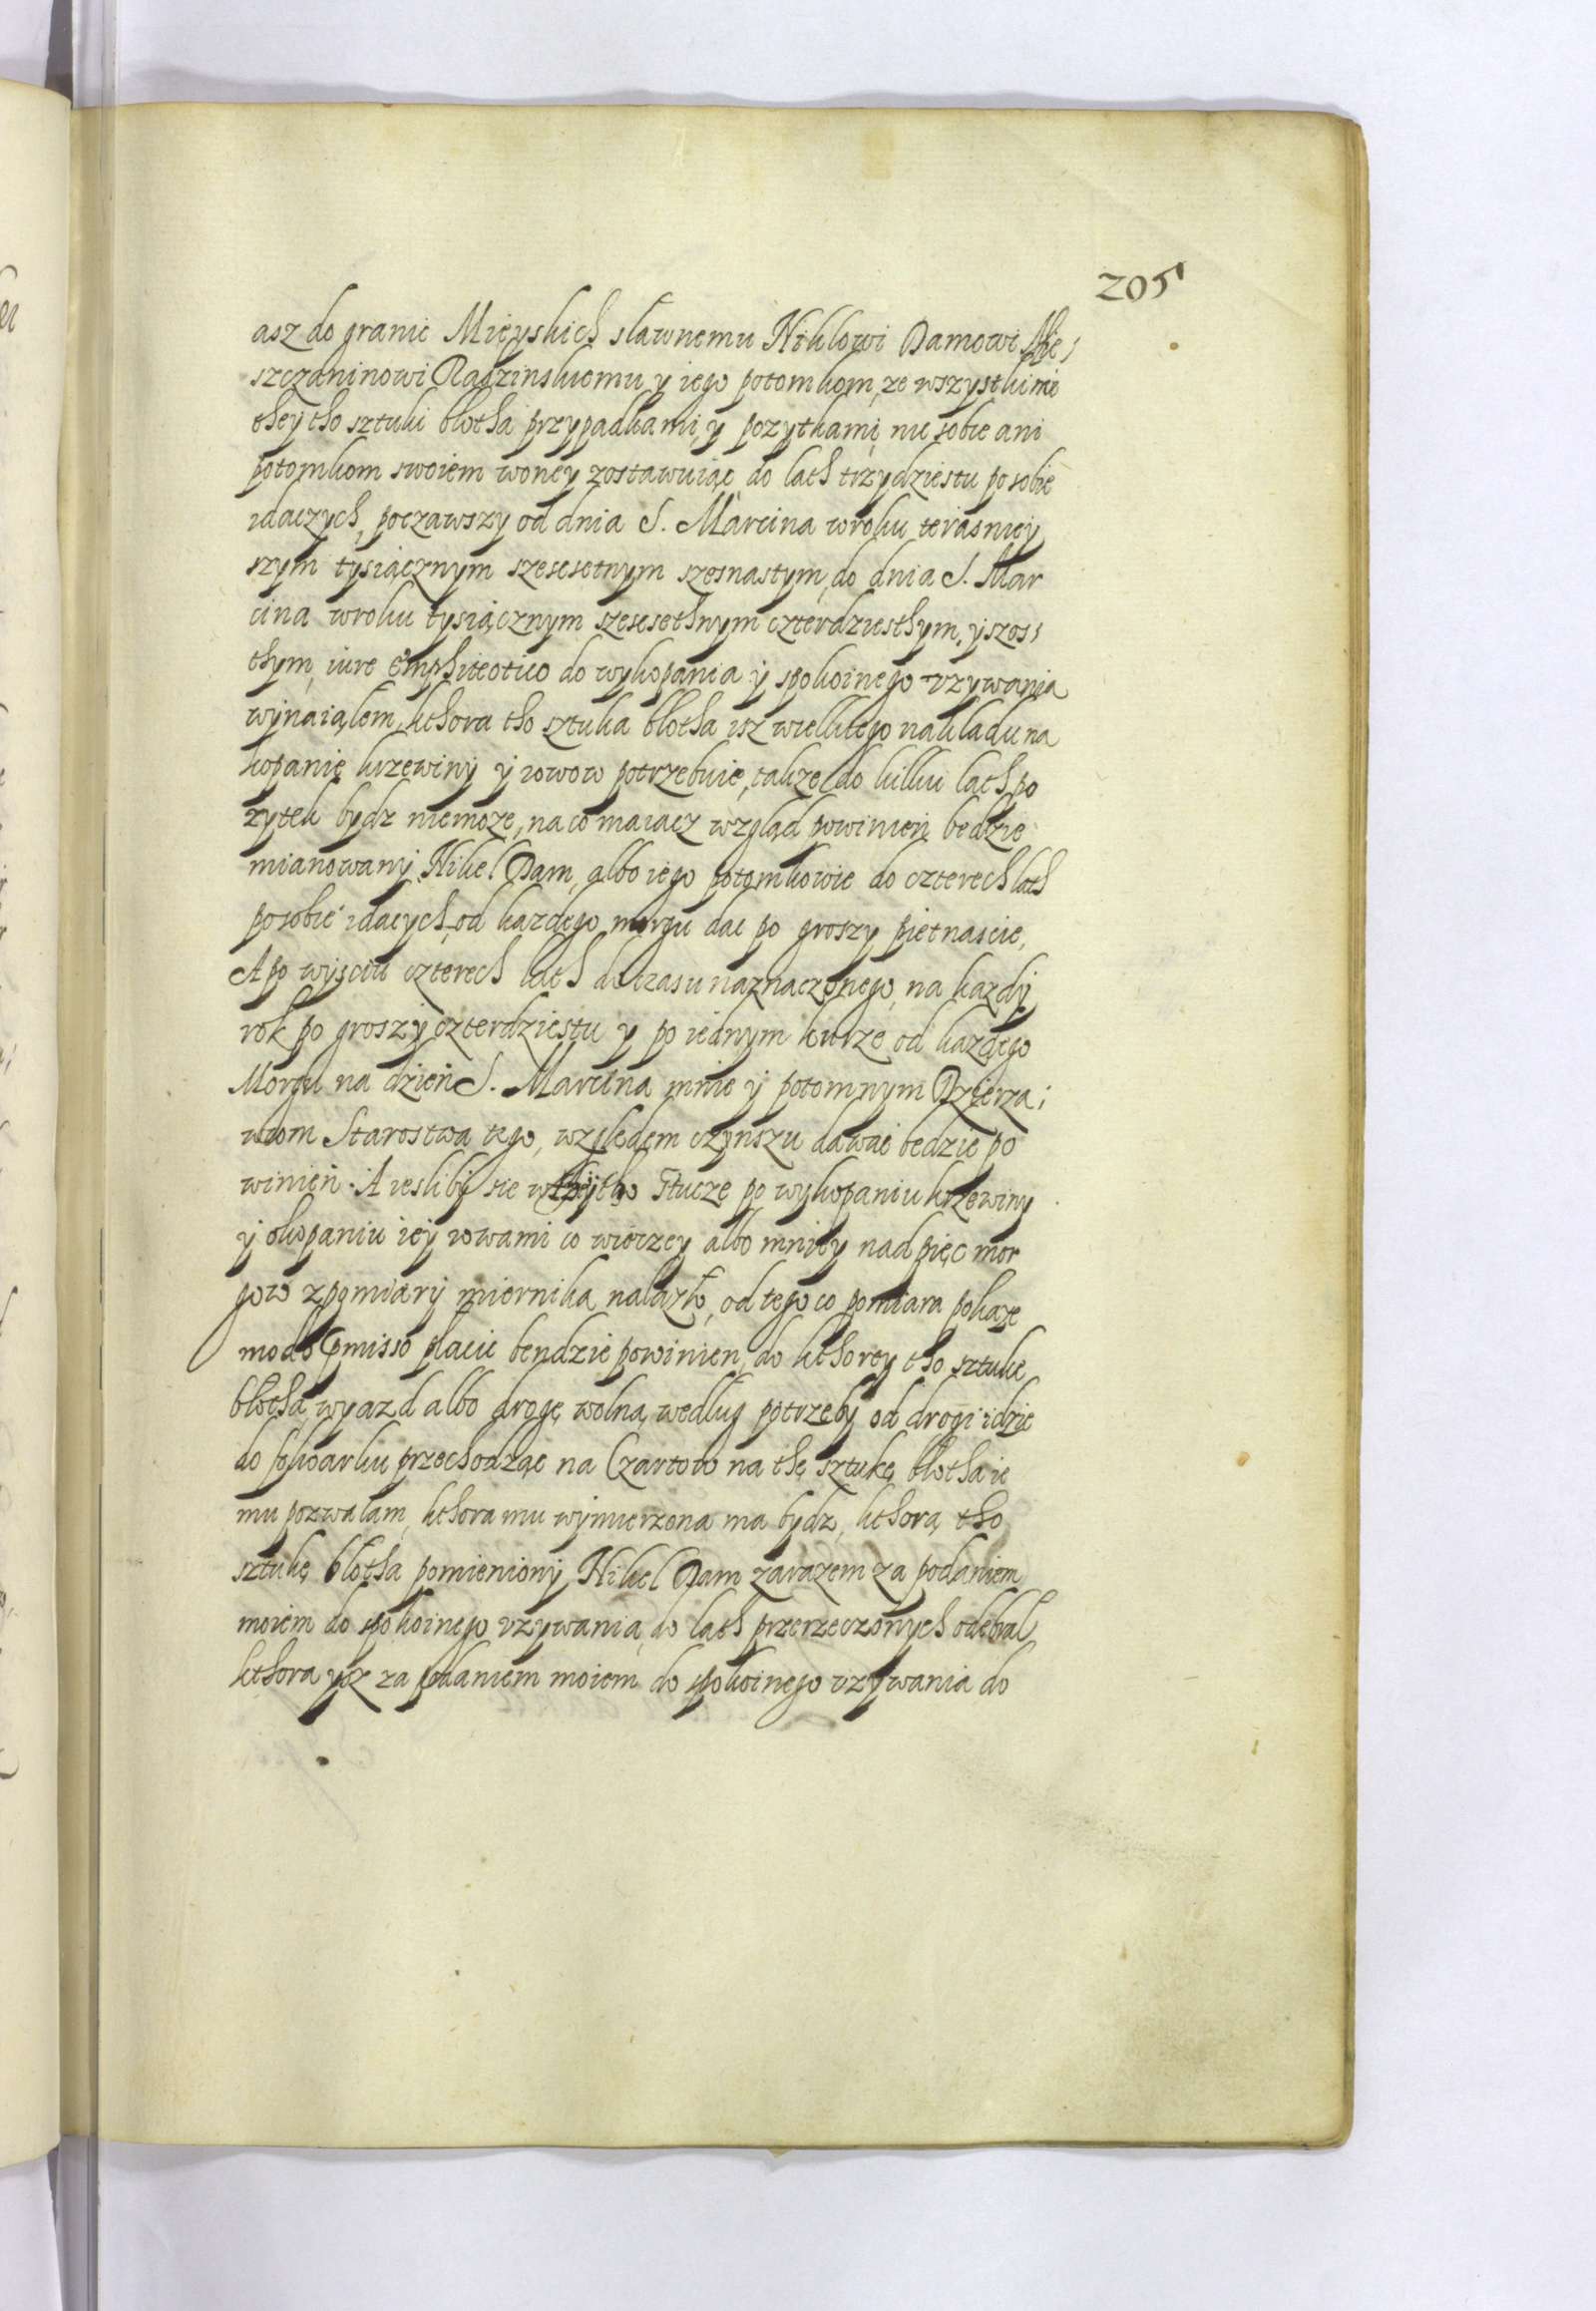 205
asz do granic Mieyskich sławnemu Niklowi Damowi Mie,
szczaninowi Radzinskiemu y iego potomkom, ze wszystkimi
they tho sztuki błotha przypadkami, y pozytkami, nic sobie ani
potomkom swoiem woney zostawuiąc do lath trzydziestu po sobie
idaczych, począwszy od dnia S. Marcina wroku terasniey
szym tysiącznym szescsetnym szesnastym, do dnia S. Mar
cina wroku tysiącznym szescsethnym czterdziesthym, y szos,
thym, iure emphiteotico do wykopania y spokoinego vzywania
wynaiąłem, kthora tho sztuka błotha isz wielkiego nakładu na
kopanie krzewiny y rowow potrzebuie, takze do kilku lath po
zytek bydz niemoze, na co maiacz wzgląd powinien bedzie
mianowany Nikel Dam, albo iego potomkowie do czterech lath
posobie idacych, od kazdego morgu dac po groszy pietnascie,
A po wysciu czterech lath do czasu naznaczonego, na kazdy
rok po groszy czterdziestu y po iednym kurze od kazdego
Morgu na dzien S. Marcina mnie y potomnym Dzierza,
wcom Starostwa tego, względem czynszu dawac bedzie po
winien. A iesliby sie w theytho sztucze po wykopaniu krzewiny
y okopaniu iey rowami co wieczey albo mniey nad pięc mor
gow z pomiary miernika nalazło, od tego co pomiara pokaze
modo pmisso placic bendzie powinien, do kthorey tho sztuke
błotha, wyazd albo drogę wolną według potrzeby od drogi idzie
do folwarku przechodząc na Czartow na thę sztukę błotha ie
mu pozwalam, kthora mu wymierzona ma bydz, kthorą tho
sztukę błotha pomieniony Nikel Dam zarazem za podaniem
moiem do spokoinego vzywania, do lath przerzeczonych odebrał
kthora ysz za podaniem moiem do spokoinego vzywania do